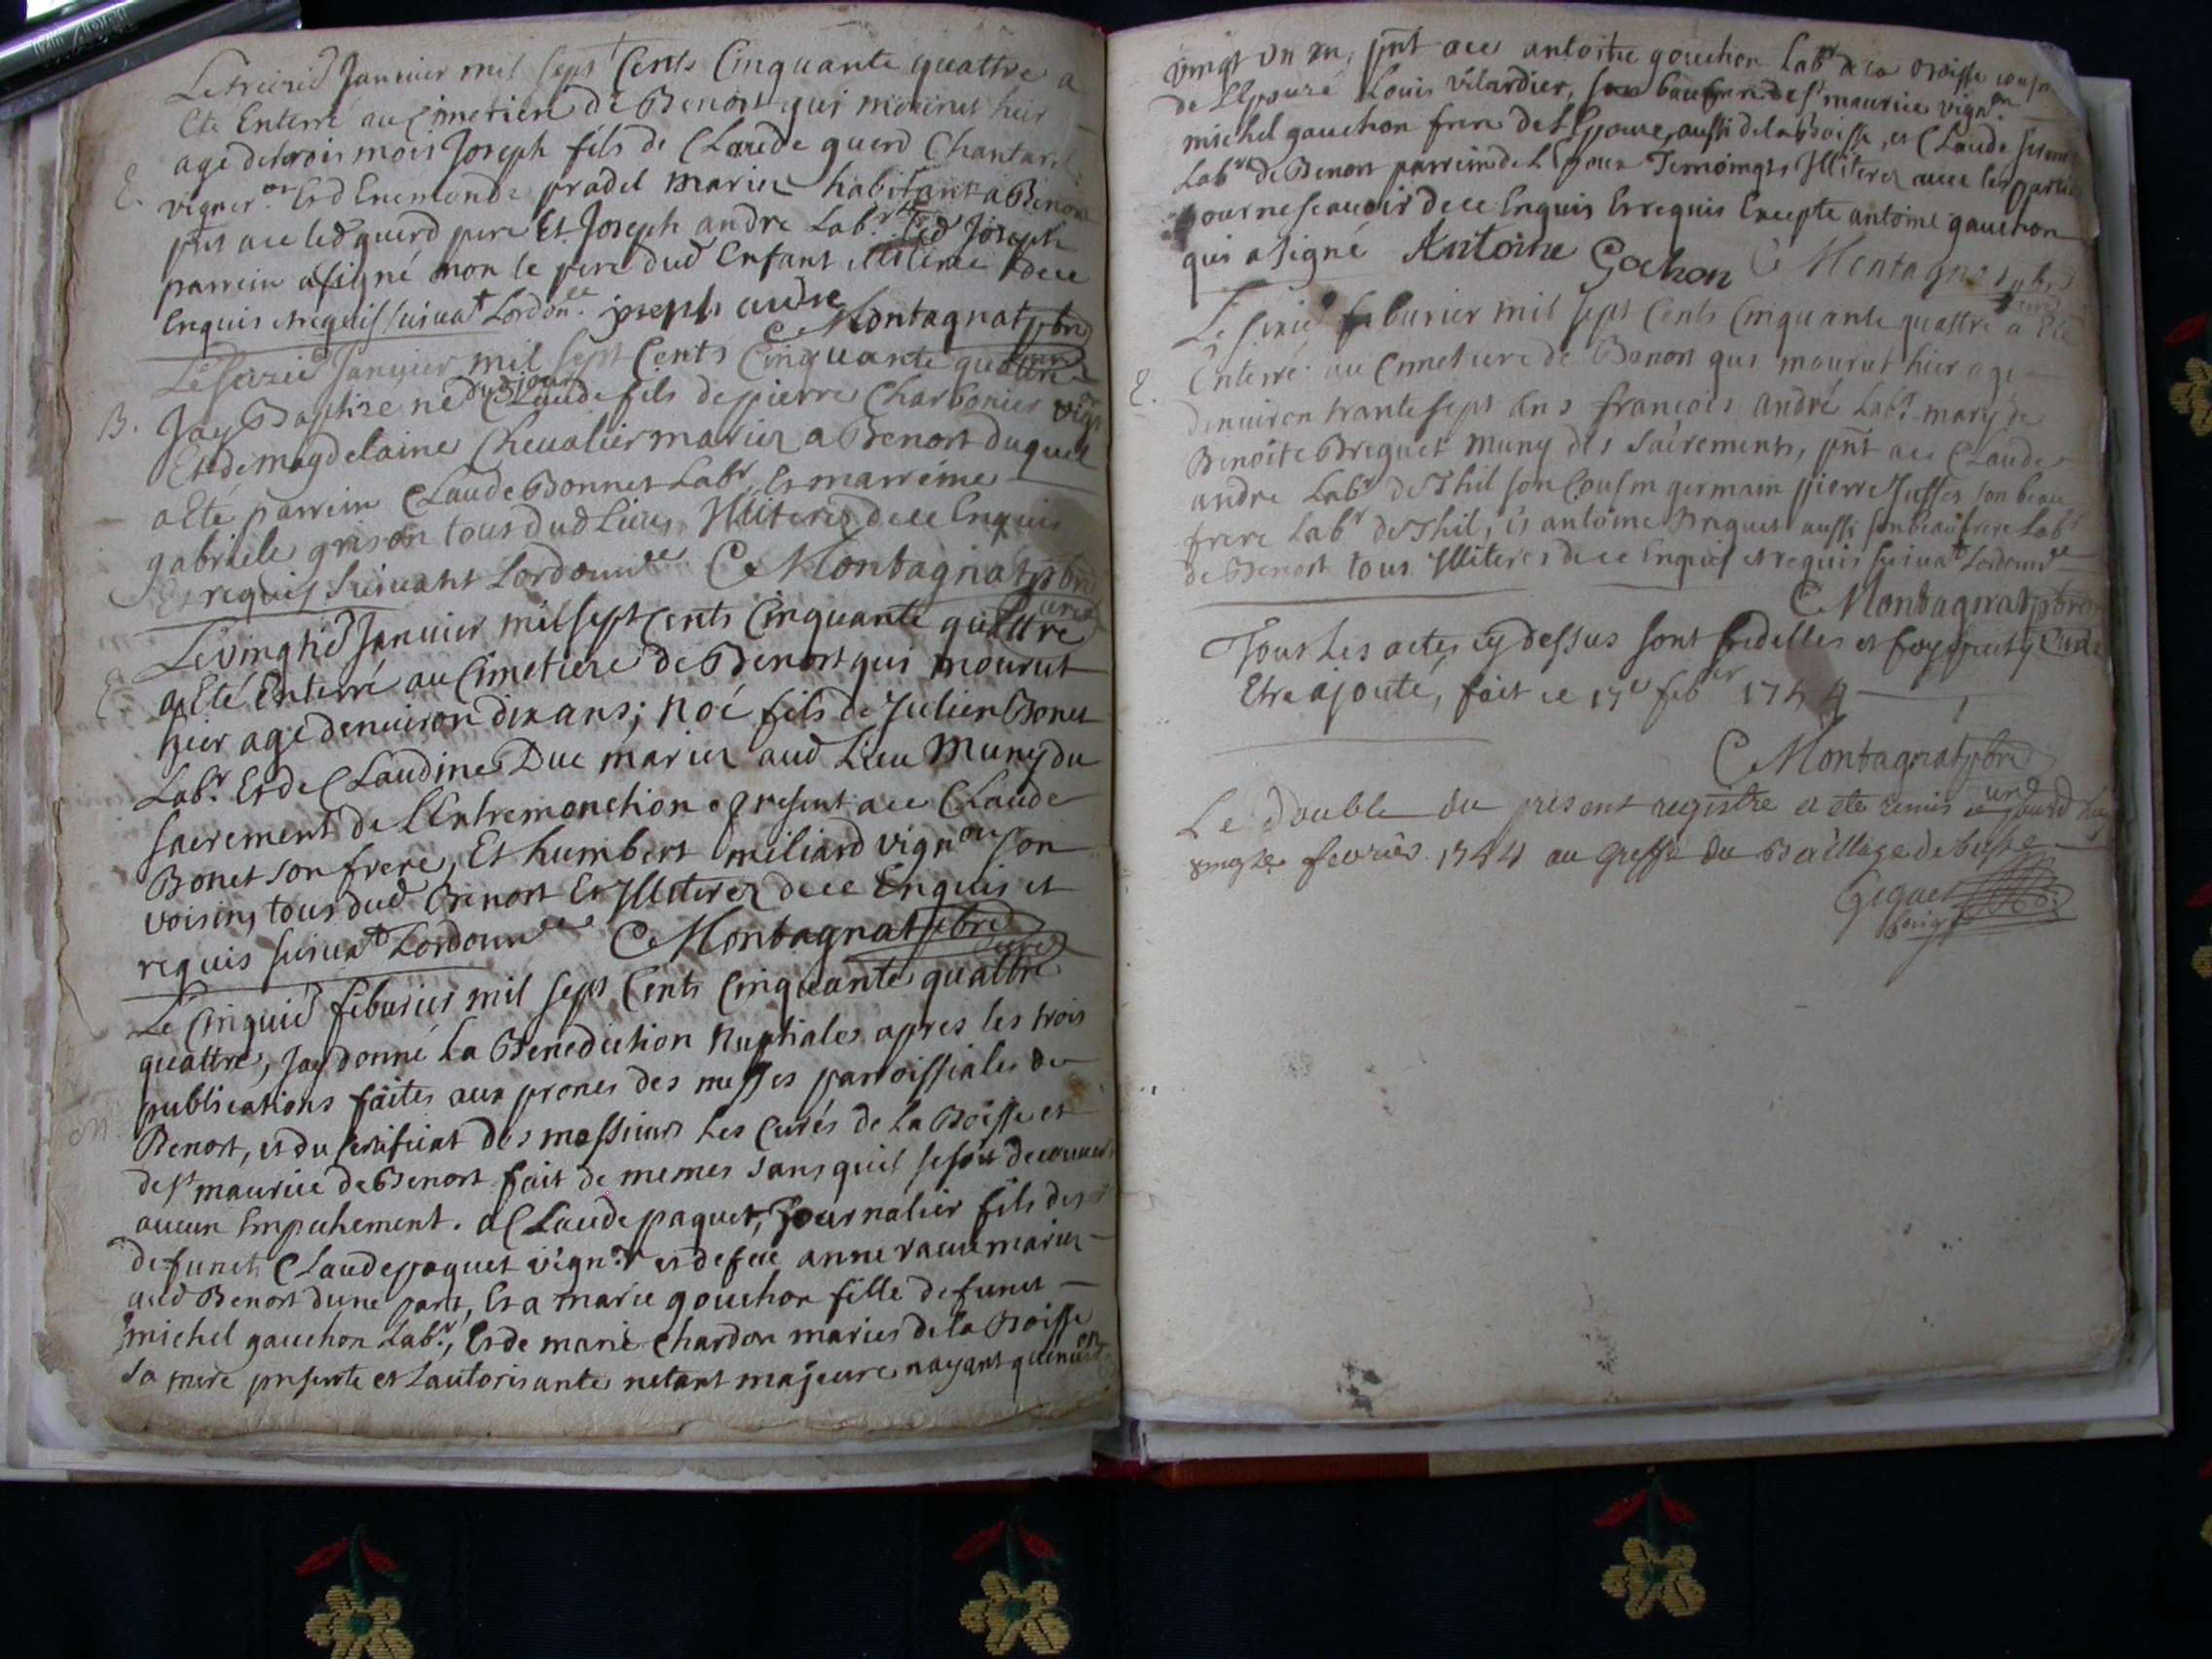 Le treizie Januier mil sept Cents Cinquante quattre a
Ete Enterré au Cimetiere de Benost qui mourut hier
E.
age de trois mois Joseph fils de Claude guerd Chantarel
vigner.on Et d'Enemonde pradel mariez habitant a Benost
pnt aue led guerd pere Et Joseph andre Lab.r led Joseph
parrein a signé non le pere dud Enfant illiteré de ce
Enquis et requis suiuat Lordon.ce joseph andre
C Montagnat pbre
curé
Le seizie Januier mil sept Cents Cinquante quattre
B.
Jay Baptize né dud jour Claude fils de pierre Charbonier vign
Et de magdelaine Cheualier mariez a Benost duquel
a Eté parrein Claude Bonnet Labr, Et marreine
gabriele grison tous dud Lieu, Illiterez de ce Enquis
Et requis suiuant Lordonn.ce C Montagnat pbre
curé
Le vingtie Januier mil sept Cents Cinquante quattre
E.
a Eté Enterré au Cimetiere de Benost qui mourut
hier agé denuiron dix ans; Noé fils de Julien Bonet
Lab.r Et de Claudine Duc mariez aud Lieu Muny du
sacrement de l'Entremonction present aue Claude
Bonet son frere, Et humbert miliard vign.on son
voisin, tous dud Benost Et Illiterez de ce Enquis et
requis suiuat Lordonn.ce C Montagnat pbre
curé
Le Cinquie feburier mil sept Cents Cinquante quattre
quattre, Jay donné la Benediction Nuptiales apres les trois
publications faites aux prones des messes parroissiales de
M.
Benost, et du Certificat des messieurs Les Curés de la Boisse et
de st maurice de Benost fait de memes sans quil se soit decouuert
aucun Empechement. a Claude paquet, Journalier fils des
defunct Claude paquet vign.r et de feue anne mariez
aud Benost dune part, Et a marie gouchon fille defunct
michel gauchon Lab.r, Et de marie Chardon maries de la Boisse
sa mere presente et Lautorisante netant majeure nayant quenuiron
vingt un an, pnt aue antoine gouchon Labr de la Boisse cousin
de Lepouzé Louis vilardier, son beaufrere de st maurice vign.on
michel gauchon frere de Lepouze, aussi de la Boisse, et Claude
Labr de Benost parrein de Lepoux Temoingts Illiterez auec les parties
pour ne scauoir de ce Enquis Et requis Excepte antoine gauchon
qui a signé Antoine Gochon C Montagnat pbre
curé
Le sixie feburier mil sept Cents Cinquante quattre a Eté
E.
Enterré au Cimetiere de Benost qui mourut hier agé
denuiron trante sept ans françois andré Lab.r mary de
Benoite Breguet muny des sacrements, pnt aue Claude
andre Labr de Thil son Cousin germain pierre son beau
frere Labr de Thil, et antoine Breguet aussi son beaufrere Labr
de Benost tous Illiteres de ce Enquis et requis suiuat Lordonn.ce
C Montagnat pbre
Curé
Tous Les actes cy dessus sont fidelles et foy
Etre ajouté, fait ce 17e feber 1754
C Montagnat pbre
curé
Le Double du present registre a ete remis ce jourd huy
fevrier 1754 au Greffe du Baillage de